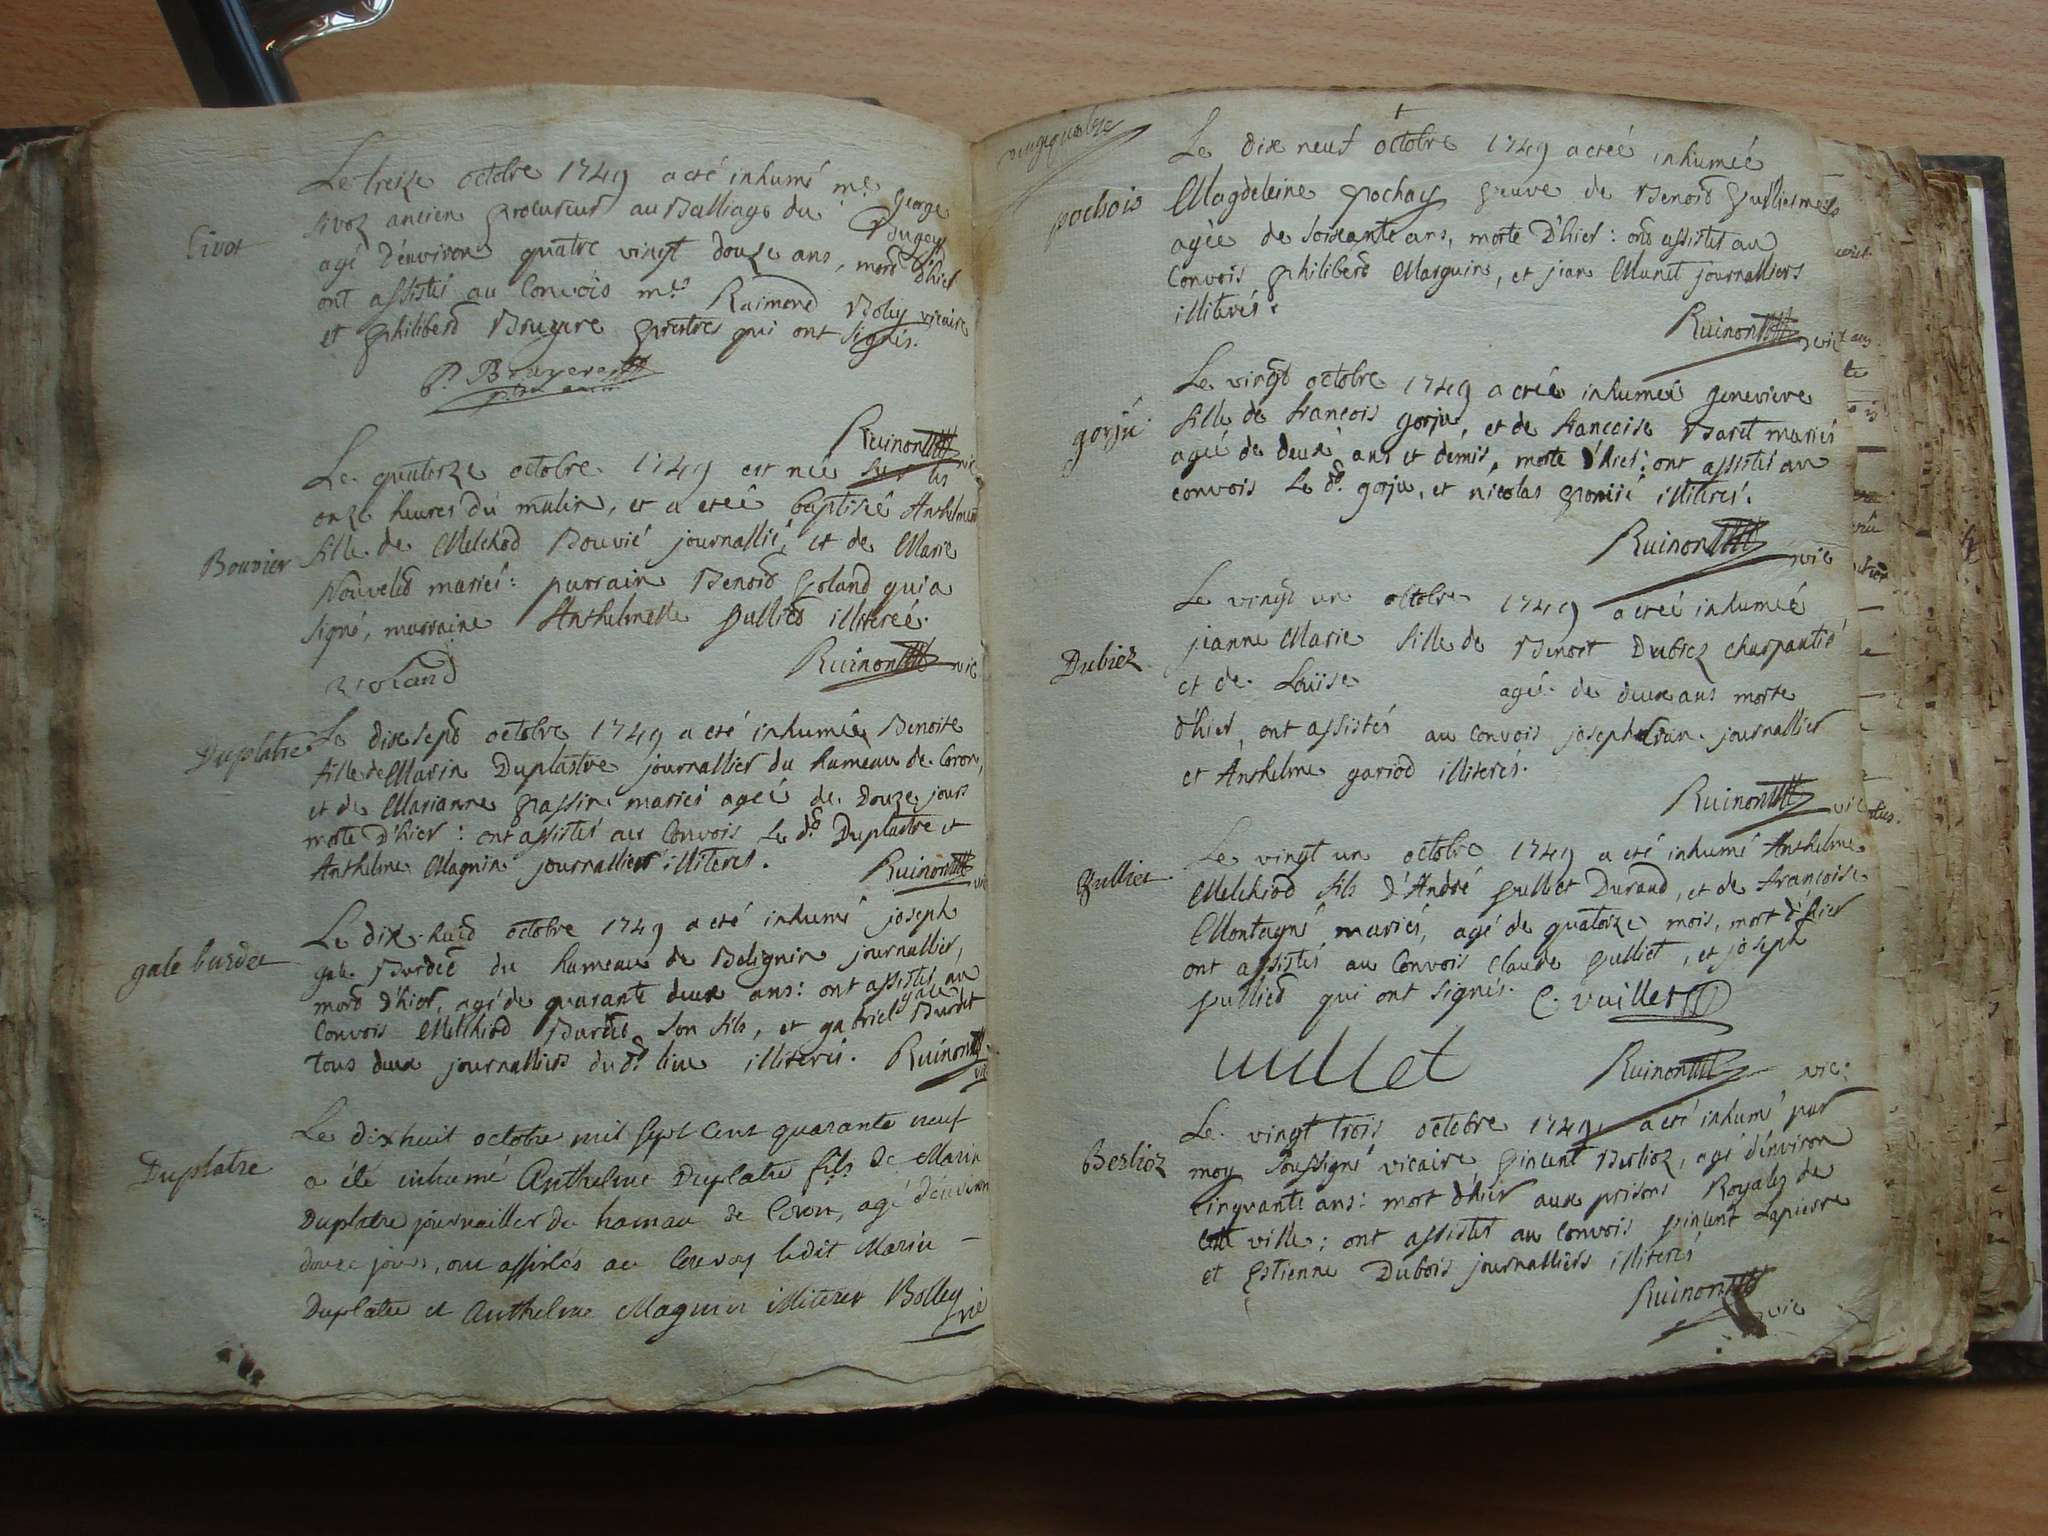 Civot
Le treize octobre 1749 a été inhumé me. George
Sivoz ancien procureur au Balliage du Bugey
agé d'environ quatre vingt douze ans, mort d'hier
ont assistés au Convois mrs. Raimond Boley vicaire
et philibert Bruyere prêtres qui ont signés.
P. Bruyere
Ruinon vic
Le quatorze octobre 1749 est née sur les
onze heures du matin, et a etée baptisée Anthelmette
fille de Melchiod Bouvié journallié, et de Marie
Bouvier
Nouveled mariés: parrain Benoid Roland qui a
signé, marraine Anthelmette Vullied illiterée.
Roland Ruinon vic
Duplatre
Le dixsept octobre 1749 a eté inhumée Benoite
fille de Marin Duplastre journallier du hameau de Coron,
et de Marianne passin mariés agée de Douze jours
morte d'hier: ont assistés au Convois Le dt. Duplastre et
Anthelme Magnin journalliers illiterés. Ruinon vic
gale burdet
Le dix-huid octobre 1749 a eté inhumé joseph
gale Burdet du hameau de Belignin journallier,
mord d'hier, agé de quarante deux ans: ont assistés au
Convois Melchiod Burdet son fils, et gabriel gale Burdet
tous deux journalliers du dt. lieu illiterés. Ruinon vic
Duplatre
Le dixhuit octobre mil sept cent quarante neuf
a été inhumé Anthelme Duplatre fils de Marin
Duplatre journallier du hamau de Coron, agé d'environ
douze jours, ont assistés au Convoy ledit Marin
Duplatre et Anthelme Magnin illiterez Bolley vic
vingtquatre
pochois
Le dix neuf octobre 1749 a eteé inhumée
Magdeleine pochay veuve de Benoid Vulliermoz
agée de soixante ans, morte d'hier: ont assistés au
Convois philiberd Marguin, et jean Munet journalliers
illiterés.
Ruinon vic
gorju
Le vingt octobre 1749 a eteé inhumée genevieve
fille de francois gorju, et de francoise Baret mariés
agée de deux ans et demis, morte d'hier: ont assistés au
convois Le dt. gorju, et nicolas illiterés.
Ruinon vic
Dubiez
Le vingt un octobre 1749 a eteé inhumée
jeanne Marie fille de Benoit Dubiez charpantié
et de Loüise agée de deux ans morte
d'hier, ont assistés au Convois joseph journallier
et Anthelme gariod illiterés.
Ruinon vic
Vulliet
Le vingt un octobre 1749 a eté inhumé Anthelme
Melchiod fils d'André Vulliet Durand, et de francoise
Montagné mariés, agé de quatorze mois, mort d'hier
ont assistés au Convois Claude Vulliet, et joseph
Vullied qui ont signés. C. vuillet
vullet Ruinon vic:
Berlioz
Le vingt trois octobre 1749 a eté inhumé par
moy soussigné vicaire Vincent Berlioz, agé d'environ
cinquante ans: mort d'hier aux prisons Royales de
cette ville; ont assistés au Convois Vincent Lapierre
et Estienne Dubois journalliers illiterés
Ruinon vic